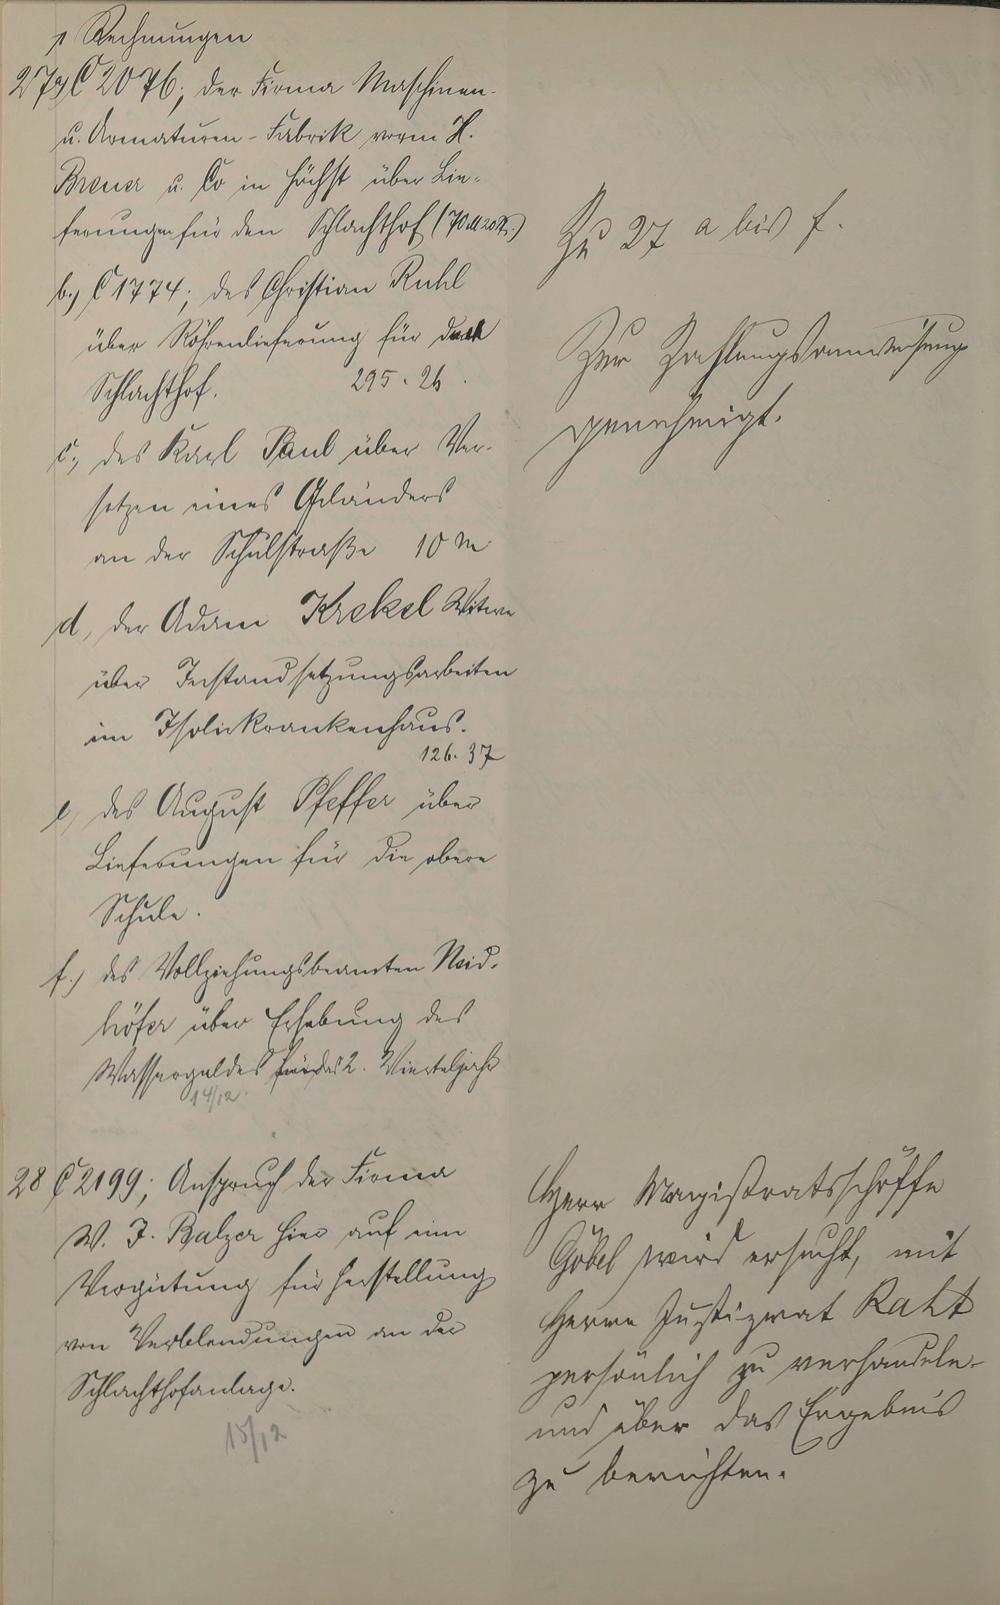 Rechnungen
27a) C 2076; der Firma Maschinen-
u. Armaturen-Fabrik vorm H.
Breuer u. Co in Höchst über Lie-
ferungen für den Schlachthof (70 M 20 Pf.)
b.) C 1774; des Christian Ruhl
über Röhrenlieferung für den
Schlachthof. 295.26.
c., des Karl Paul über Ver-
setzen eines Geländers
an der Schulstraße 10 M
d, der Adam Krekel Witwe
über Instandsetzungsarbeiten
im Isolirkrankenhaus.
126.37
e, des August Pfeffer über
Lieferungen für die obere
Schule.
f.) des Vollziehungsbeamten Neid-
höfer über Erhebung des
Wassergeldes für das 2. Vierteljahr
14/12
Zu 27 a bis f.
Zur Zahlungsanweisung
genehmigt.
28 C 2199; Anspruch der Firma
W. J. Balzer hier auf eine
Vergütung für Herstellung
von Verblendungen an der
Schlachthofanlage.
15/12
Herr Magistratsschöffe
Göbel wird ersucht, mit
Herrn Justizrat Raht
persönlich zu verhandeln
und über das Ergebnis
zu berichten.